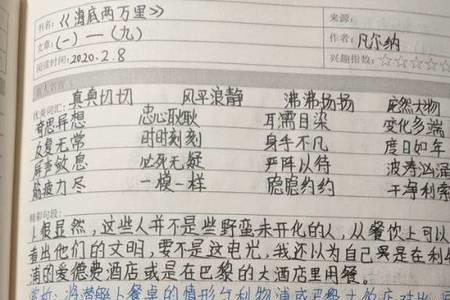 书名:《海底两万里》 来源:
文章:(一)—(九) 作者:凡尔纳
阅读时间:2020.2.8 兴趣指数:☆☆☆☆☆
优美词汇: 真真切切 风平浪静 沸沸扬扬 庞然大物
奇思异想 忠心耿耿 耳濡目染 变化多端
反复无常 时时刻刻 身手不凡 度日如年
屏声敛息 必死无疑 严阵以待 波涛汹涌
筋疲力尽 一模一样 隐隐约约 干净利索
精彩句段:
1、很显然,这些人并不是些野蛮未开化的人,从餐饮上可以
看出他们的文明,要不是这电光,我还以为自己 是在利
浦的爱德费酒店或是在巴黎的大酒店里用餐。
赏析:将 餐桌的情形 利物浦或巴黎